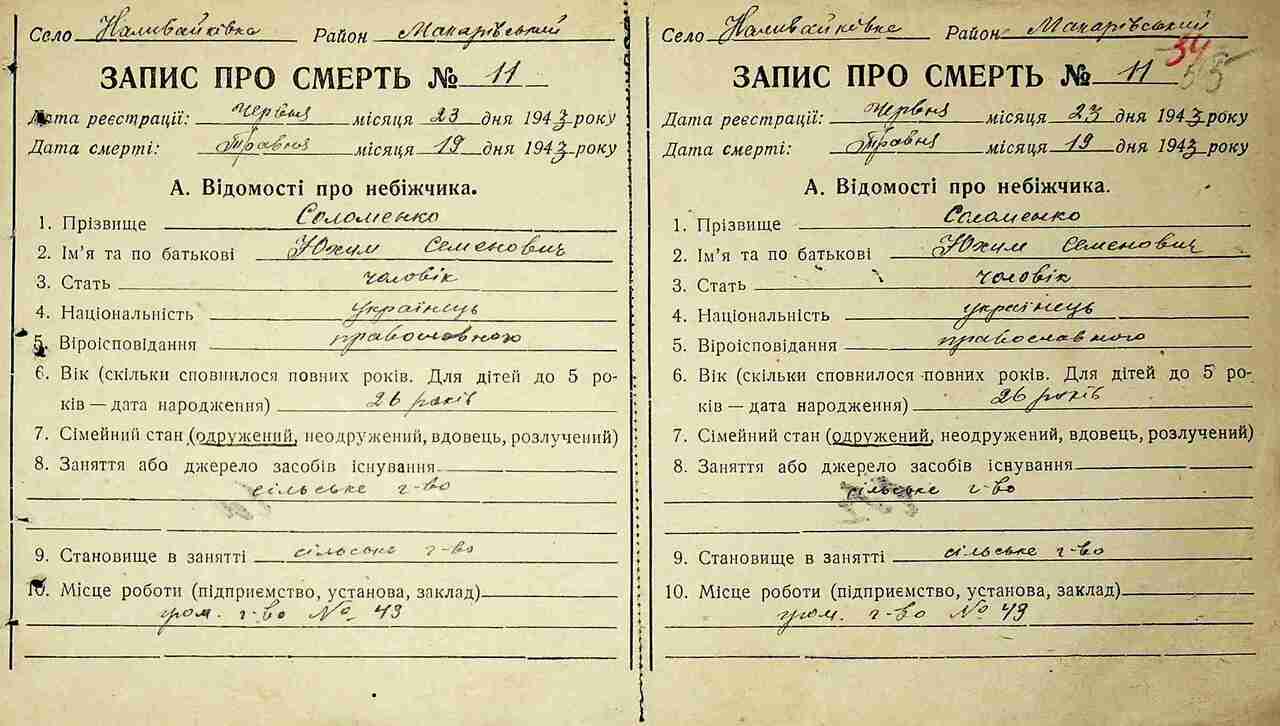 Село Наливайківка Район Макарівський
ЗАПИС ПРО СМЕРТЬ № 11
Дата реєстрації: Червня місяця 23 дня 1943 року
Дата смерті: Травня місяця 19 дня 1943 року
А. Відомості про небіжчика.
1. Прізвище Соломенко
2. Ім'я та по батькові Юхим Семенович
3. Стать чоловік
4. Національність українець
5. Віроісповідання православного
6. Вік (скільки сповнилося повних років. Для дітей до 5 ро-
ків — дата народження) 26 років
7. Сімейний стан (одружений, неодружений, вдовець, розлучений)
8. Заняття або джерело засобів існування
сільське г-во
9. Становище в занятті сільське г-во
10. Місце роботи (підприємство, установа, заклад)
гром. г-во № 49
Село Наливайківка Район Макарівський
34
ЗАПИС ПРО СМЕРТЬ № 11
Дата реєстрації: Червня місяця 23 дня 1943 року
Дата смерті: Травня місяця 19 дня 1943 року
А. Відомості про небіжчика.
1. Прізвище Соломенко
2. Ім'я та по батькові Юхим Семенович
3. Стать чоловік
4. Національність українець
5. Віроісповідання православного
6. Вік (скільки сповнилося повних років. Для дітей до 5 ро-
ків — дата народження) 26 років
7. Сімейний стан (одружений, неодружений, вдовець, розлучений)
8. Заняття або джерело засобів існування
сільське г-во
9. Становище в занятті сільське г-во
10. Місце роботи (підприємство, установа, заклад)
гром. г-во № 49